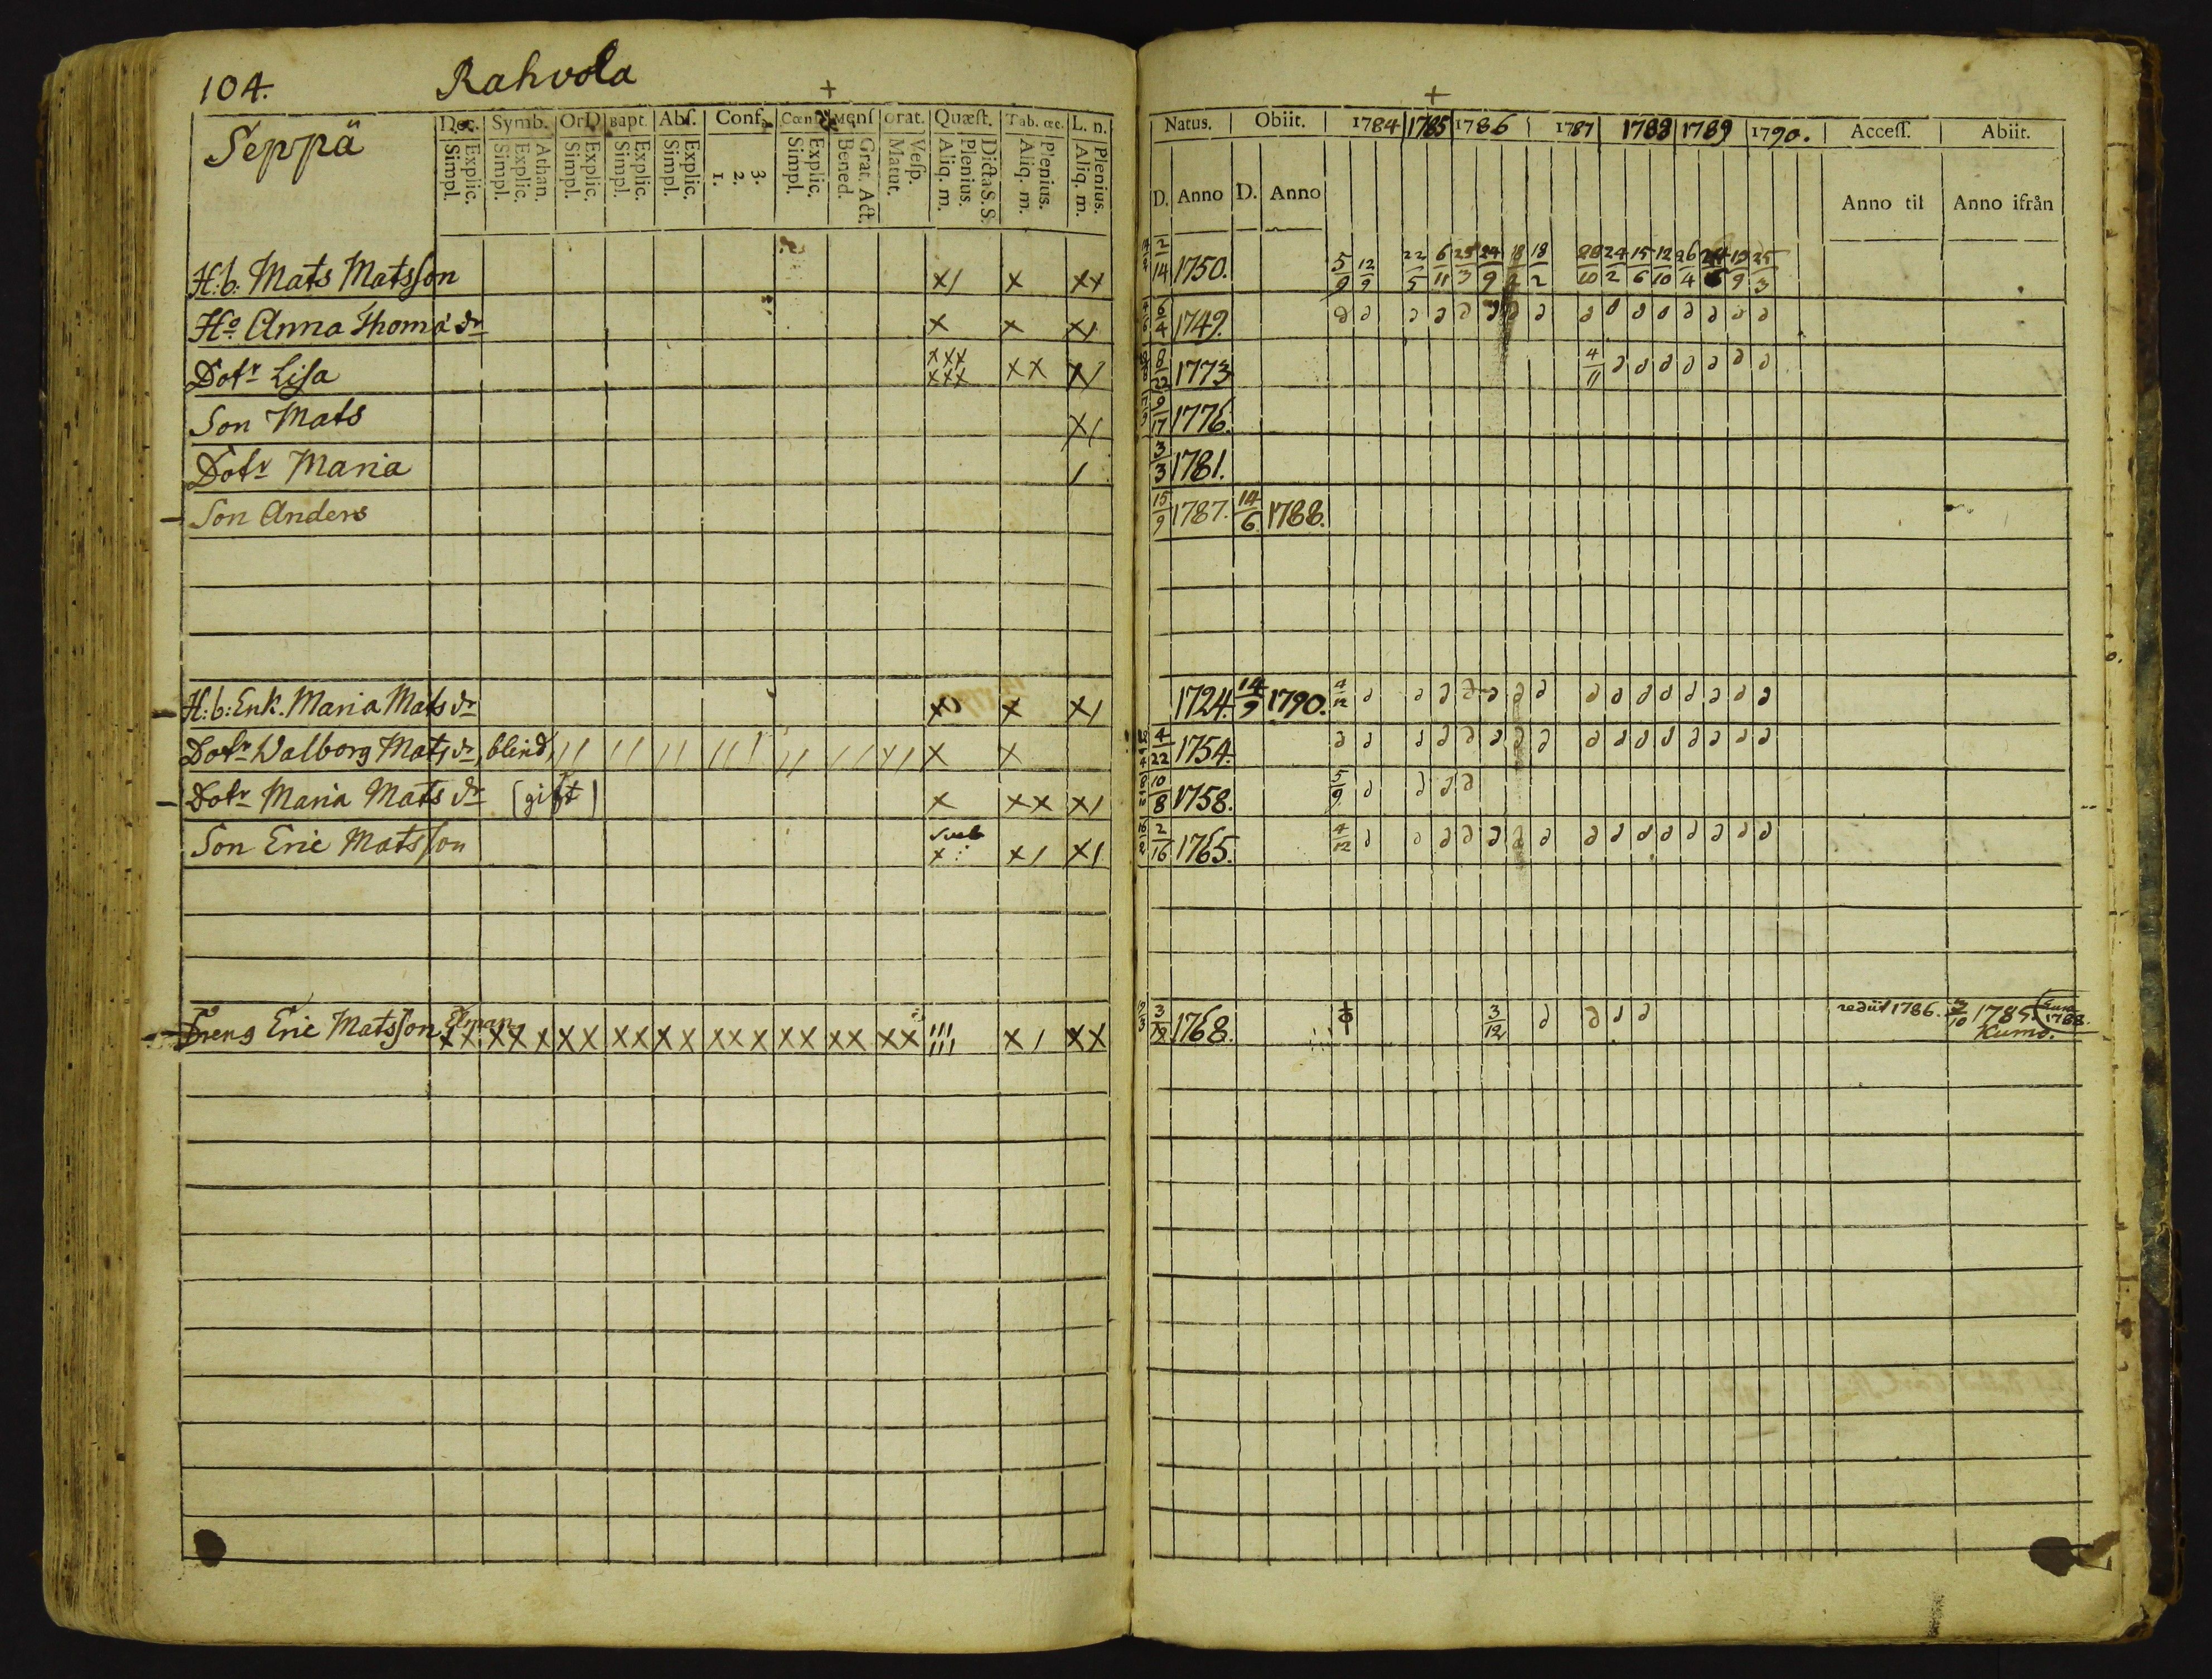 104. Rahvola
+ +
Seppä Dec. Symb. Or D Bapt. Abſ. Conf. Cœn Menſ Orat. Quæſt. Tab. œc. L. n. Natus. Obiit. 1784 1785 1786 1787 1788 1789 1790. Acceſſ. Abiit.
Explic. Simpl. Athan. Explic. Simpl. Explic. Simpl. Explic. Simpl. Explic. Simpl. 3. 2. 1. Explic. Simpl. Grat. Act. Bened. Veſp. Matut. Dicta S.S. Plenius. Aliq. m. Plenius. Aliq. m. Plenius. Aliq. m. D. Anno D. Anno Anno til Anno ifrån
H:b: Mats Matsſon x/ x xx 2/14 1750. 5/9 12/9 22/5 6/11 25/3 24/9 18/2 28/10 24/2 15/6 12/10 26/4 19/9 25/3
Ho Anna Thomä dr x x x/ 6/4 1749. ∂ ∂ ∂ ∂ ∂ ∂ ∂ ∂ ∂ ∂ ∂ ∂ ∂ ∂ ∂ ∂
Dotr Liſa xxx xxx xx x/ 8/22 1773 4/11 ∂ ∂ ∂ ∂ ∂ ∂ ∂
Son Mats x/ 9/17 1776.
Dotr Maria / 3/3 1781.
Son Anders 15/9 1787. 14/6 1788.
H:b: Enk. Maria Mats dr x x/ 1724. 14/9 1790. 4/12 ∂ ∂ ∂ ∂ ∂ ∂ ∂ ∂ ∂ ∂ ∂ ∂ ∂ ∂ ∂
Dotr Walborg Mats dr, blind, // // // /// // // // x x 4/22 1754. ∂ ∂ ∂ ∂ ∂ ∂ ∂ ∂ ∂ ∂ ∂ ∂ ∂ ∂ ∂ ∂
Dotr Maria Mats dr (gift) x xx x/ 10/8 1758. 5/9 ∂ ∂ ∂ ∂
Son Eric Matsſon x x/ x/ 2/16 1765. 4/12 ∂ ∂ ∂ ∂ ∂ ∂ ∂ ∂ ∂ ∂ ∂ ∂ ∂ ∂ ∂
Dreng Eric Matsſon xx xxx xx xx xx xxx xx xx xx !!! !!! x/ xx 3/12 1768. 3/12 ∂ ∂ ∂ ∂ rediit 1786. 3/10 1785. 1788.
Kumo.